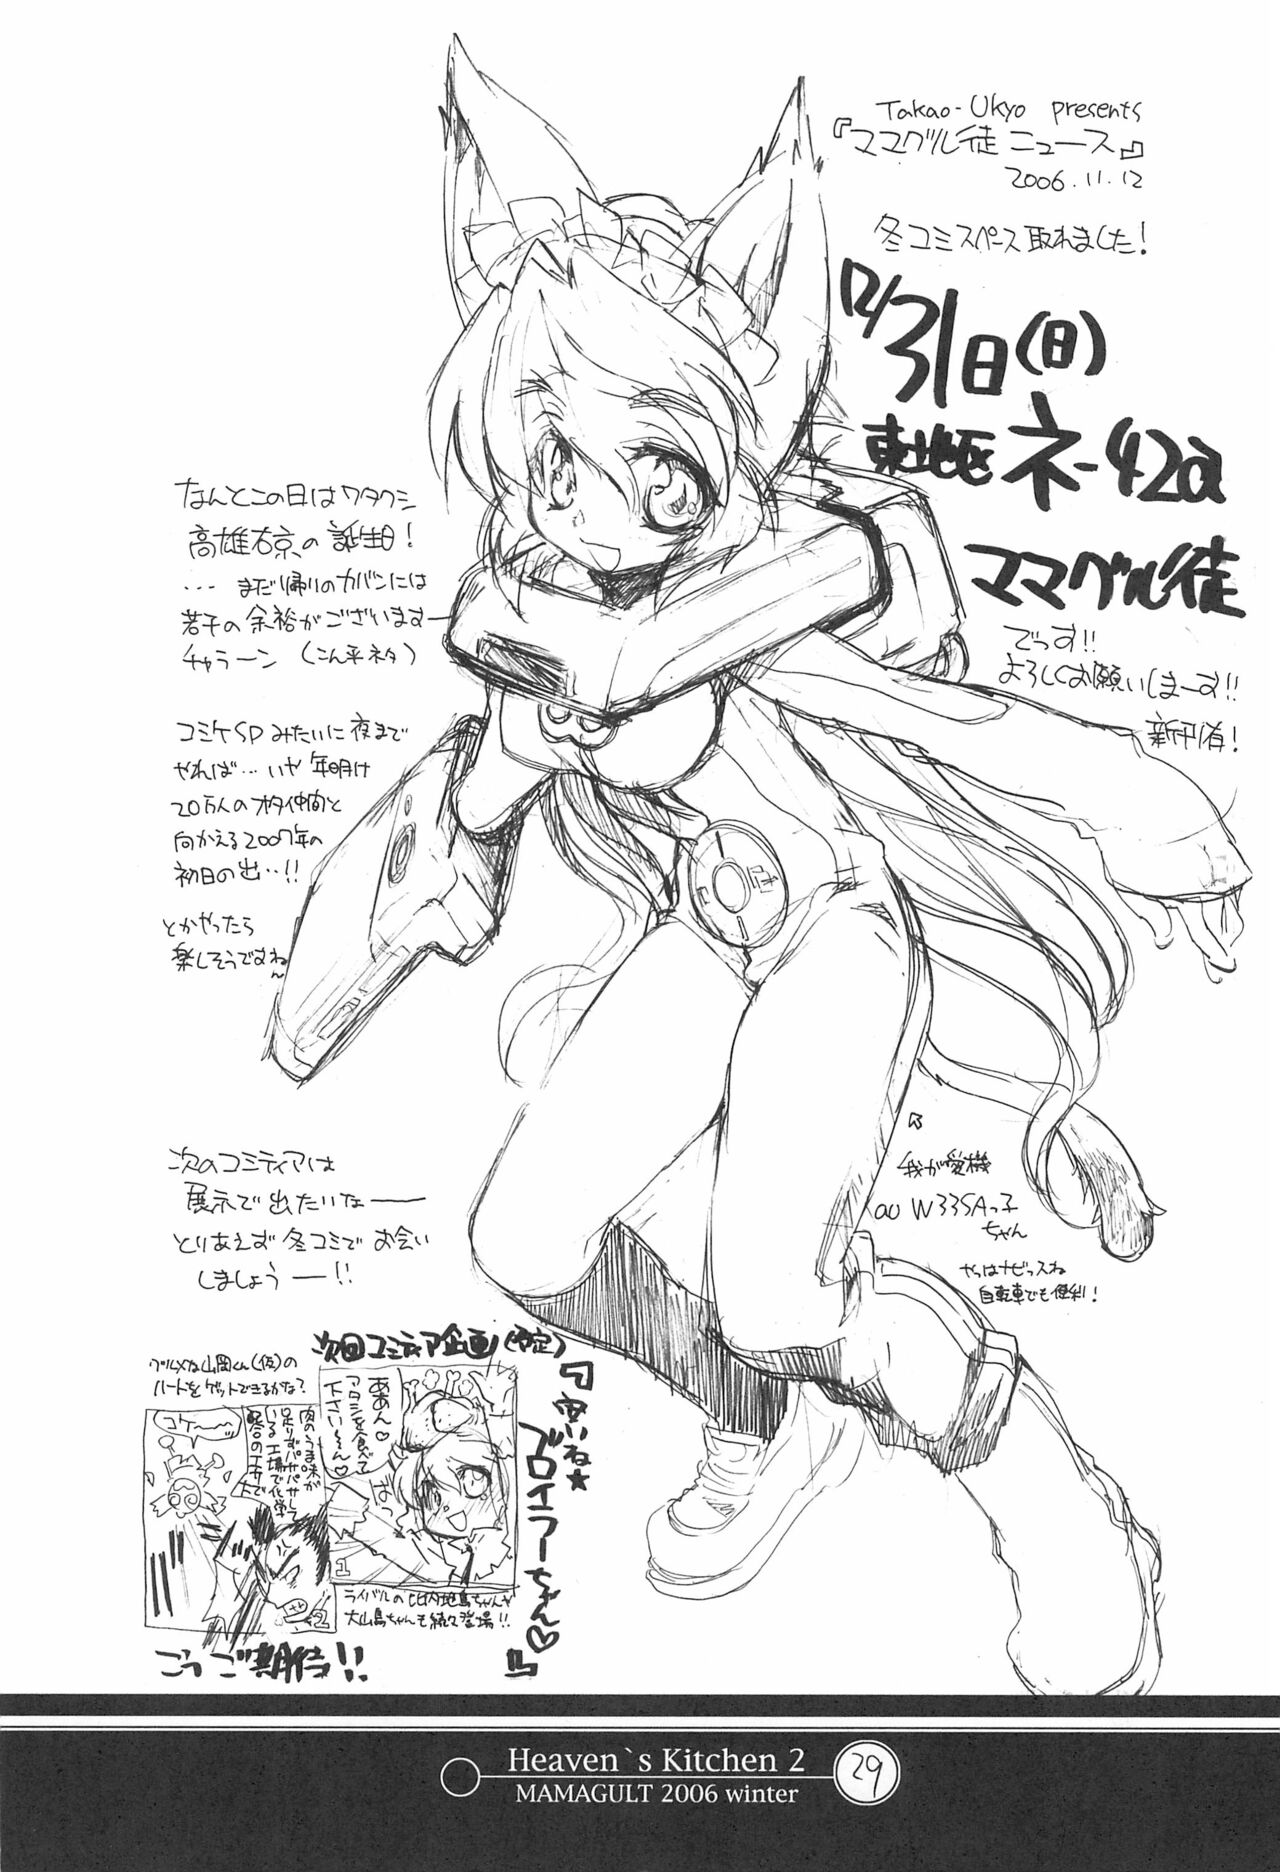 Takao-Ukyo presents
『ママグル徒 ニュース』
2006.11.12
冬コミスペース取れました!
12/31日(日)
東地区 ネ-42a
ママグル徒
でっす!!
よろしくお願いしまーす!!
新刊有!
なんとこの日はワタクシ
高雄右京の誕生日!
... まだ帰りのカバンには
若干の余裕がございます
チャラーン (こん平ネタ)
コミケSPみたいに夜まで
やれば…いや年明け
20万人のオタ仲間と
向かえる2007年の
初日の出…!!
とかやったら
楽しそうですねん
我が愛機
au W33SAっ子
ちゃん
やっぱナビっスね
自転車でも便利!
次のコミティアは
展示で出たいなー
とりあえず冬コミでお会い
しましょうー!!
次回コミティア企画(予定)
『安いね★
ブロイラーちゃん♡
』
ああん♡
アタシを食べて
下さい〜ん♡
はっ
1
グルメな山岡くん(仮)の
ハートをゲットできるかな?
肉のうま味が
足りずパサパサして
いる 工場で化学
配合のエサで
コケ〜〜ッ
2
ライバルの比内地鳥ちゃんや
大山鳥ちゃんも続々登場!!
こうご期待!!
Heaven`s Kitchen 2
MAMAGULT 2006 winter
29